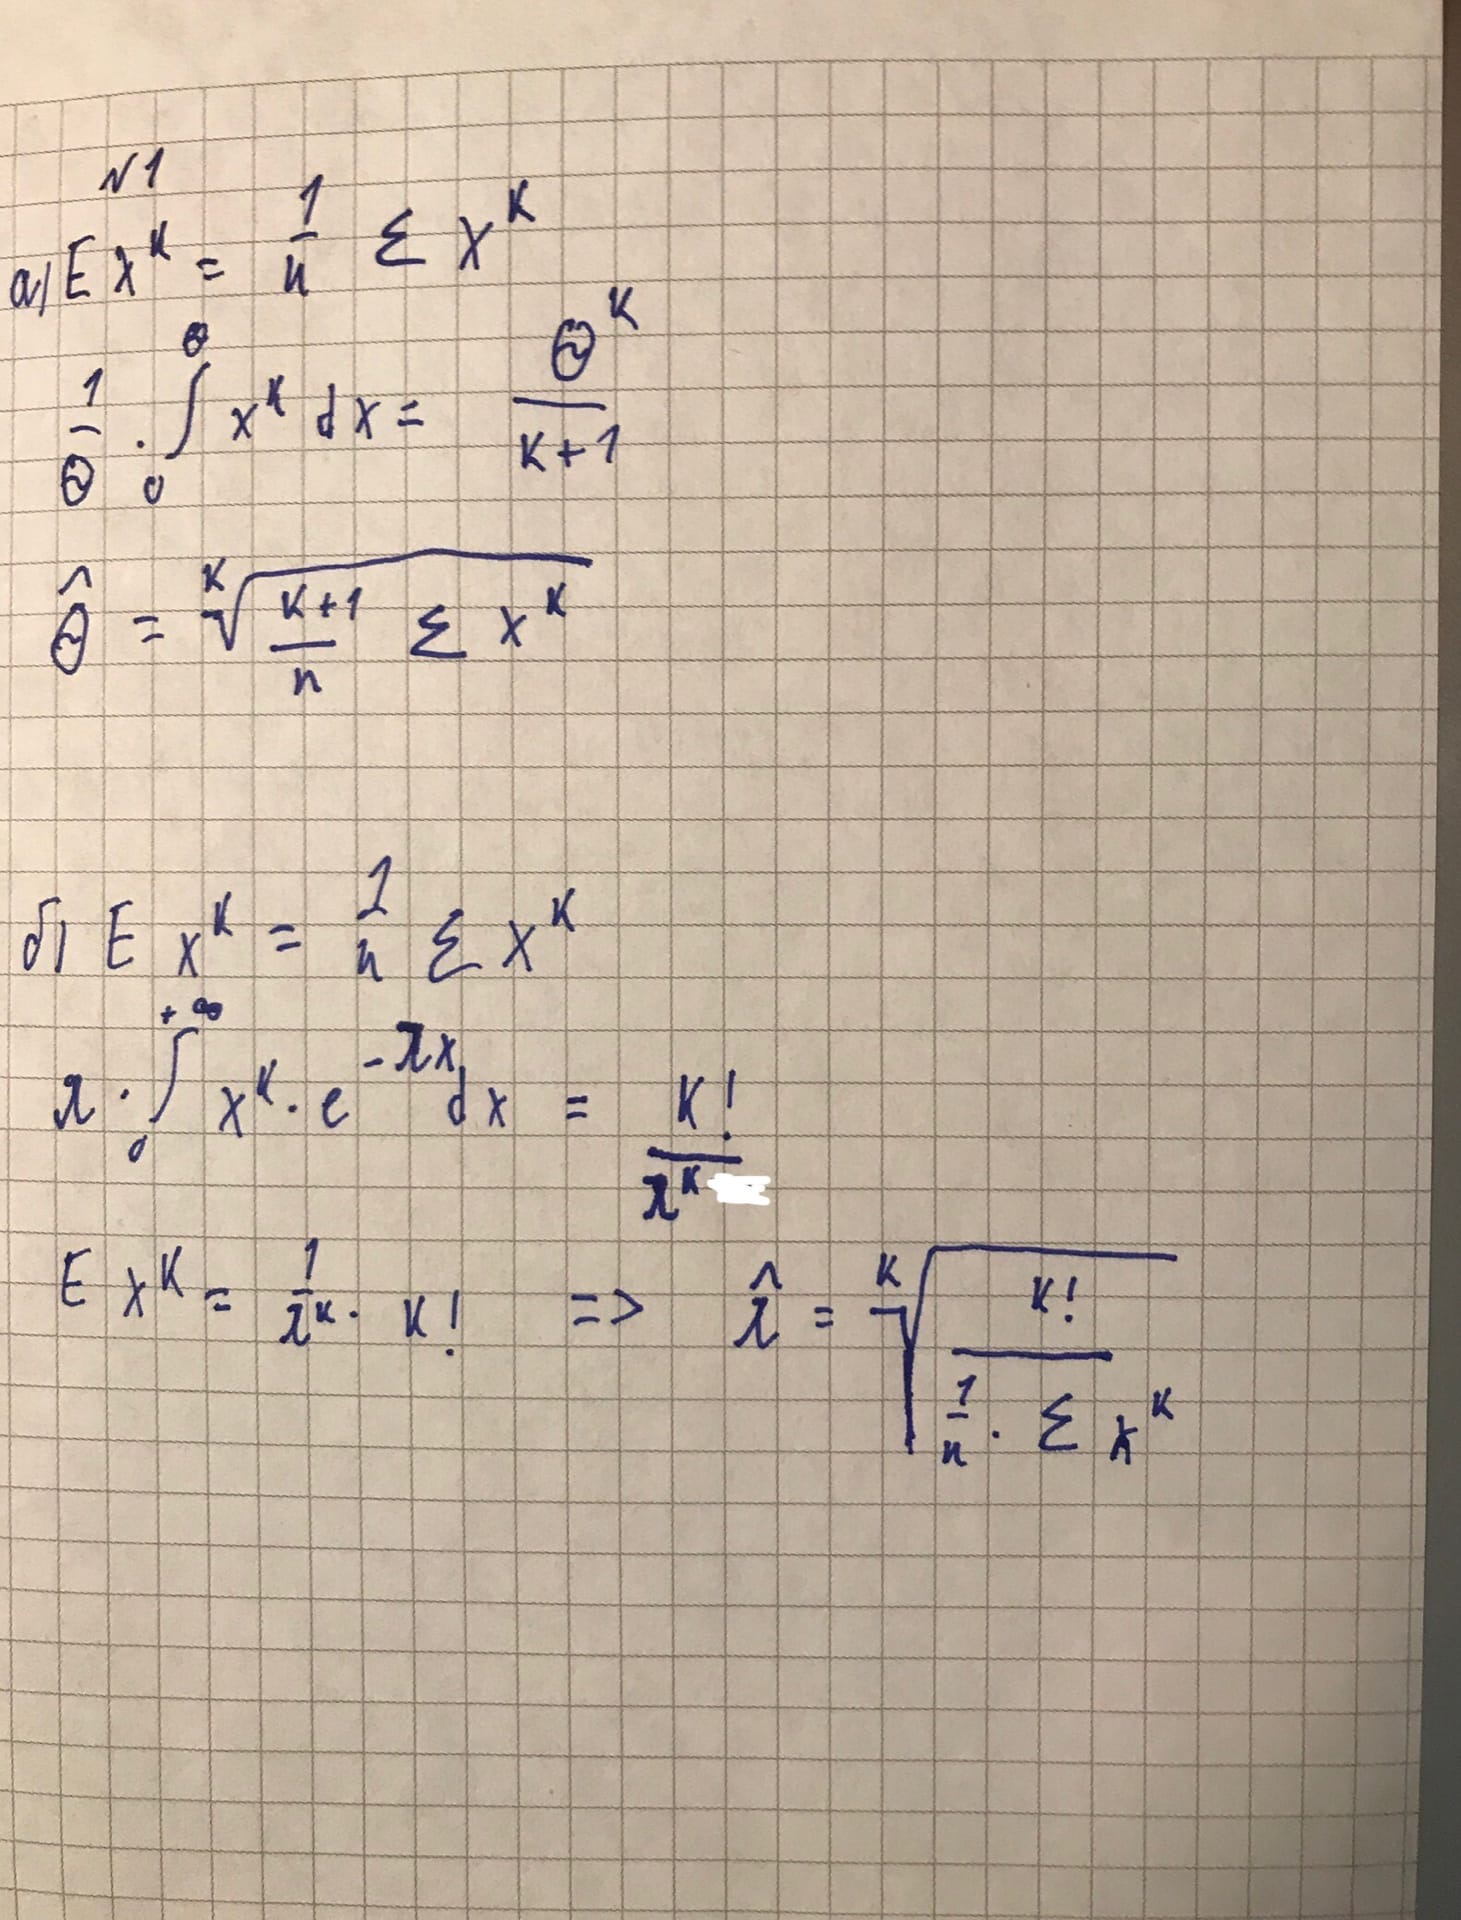 №1
а) E x^k = 1/n Σ x^k
1/θ · ∫_0^θ x^k dx = θ^k/(k+1)
θ̂ = ^k√((k+1)/n Σ x^k)
б) E x^k = 1/n Σ x^k
λ · ∫_0^{+∞} x^k · e^{-λx} dx = k!/λ^k
E x^k = 1/λ^k · k! => λ̂ = ^k√(k!/(1/n · Σ x^k))